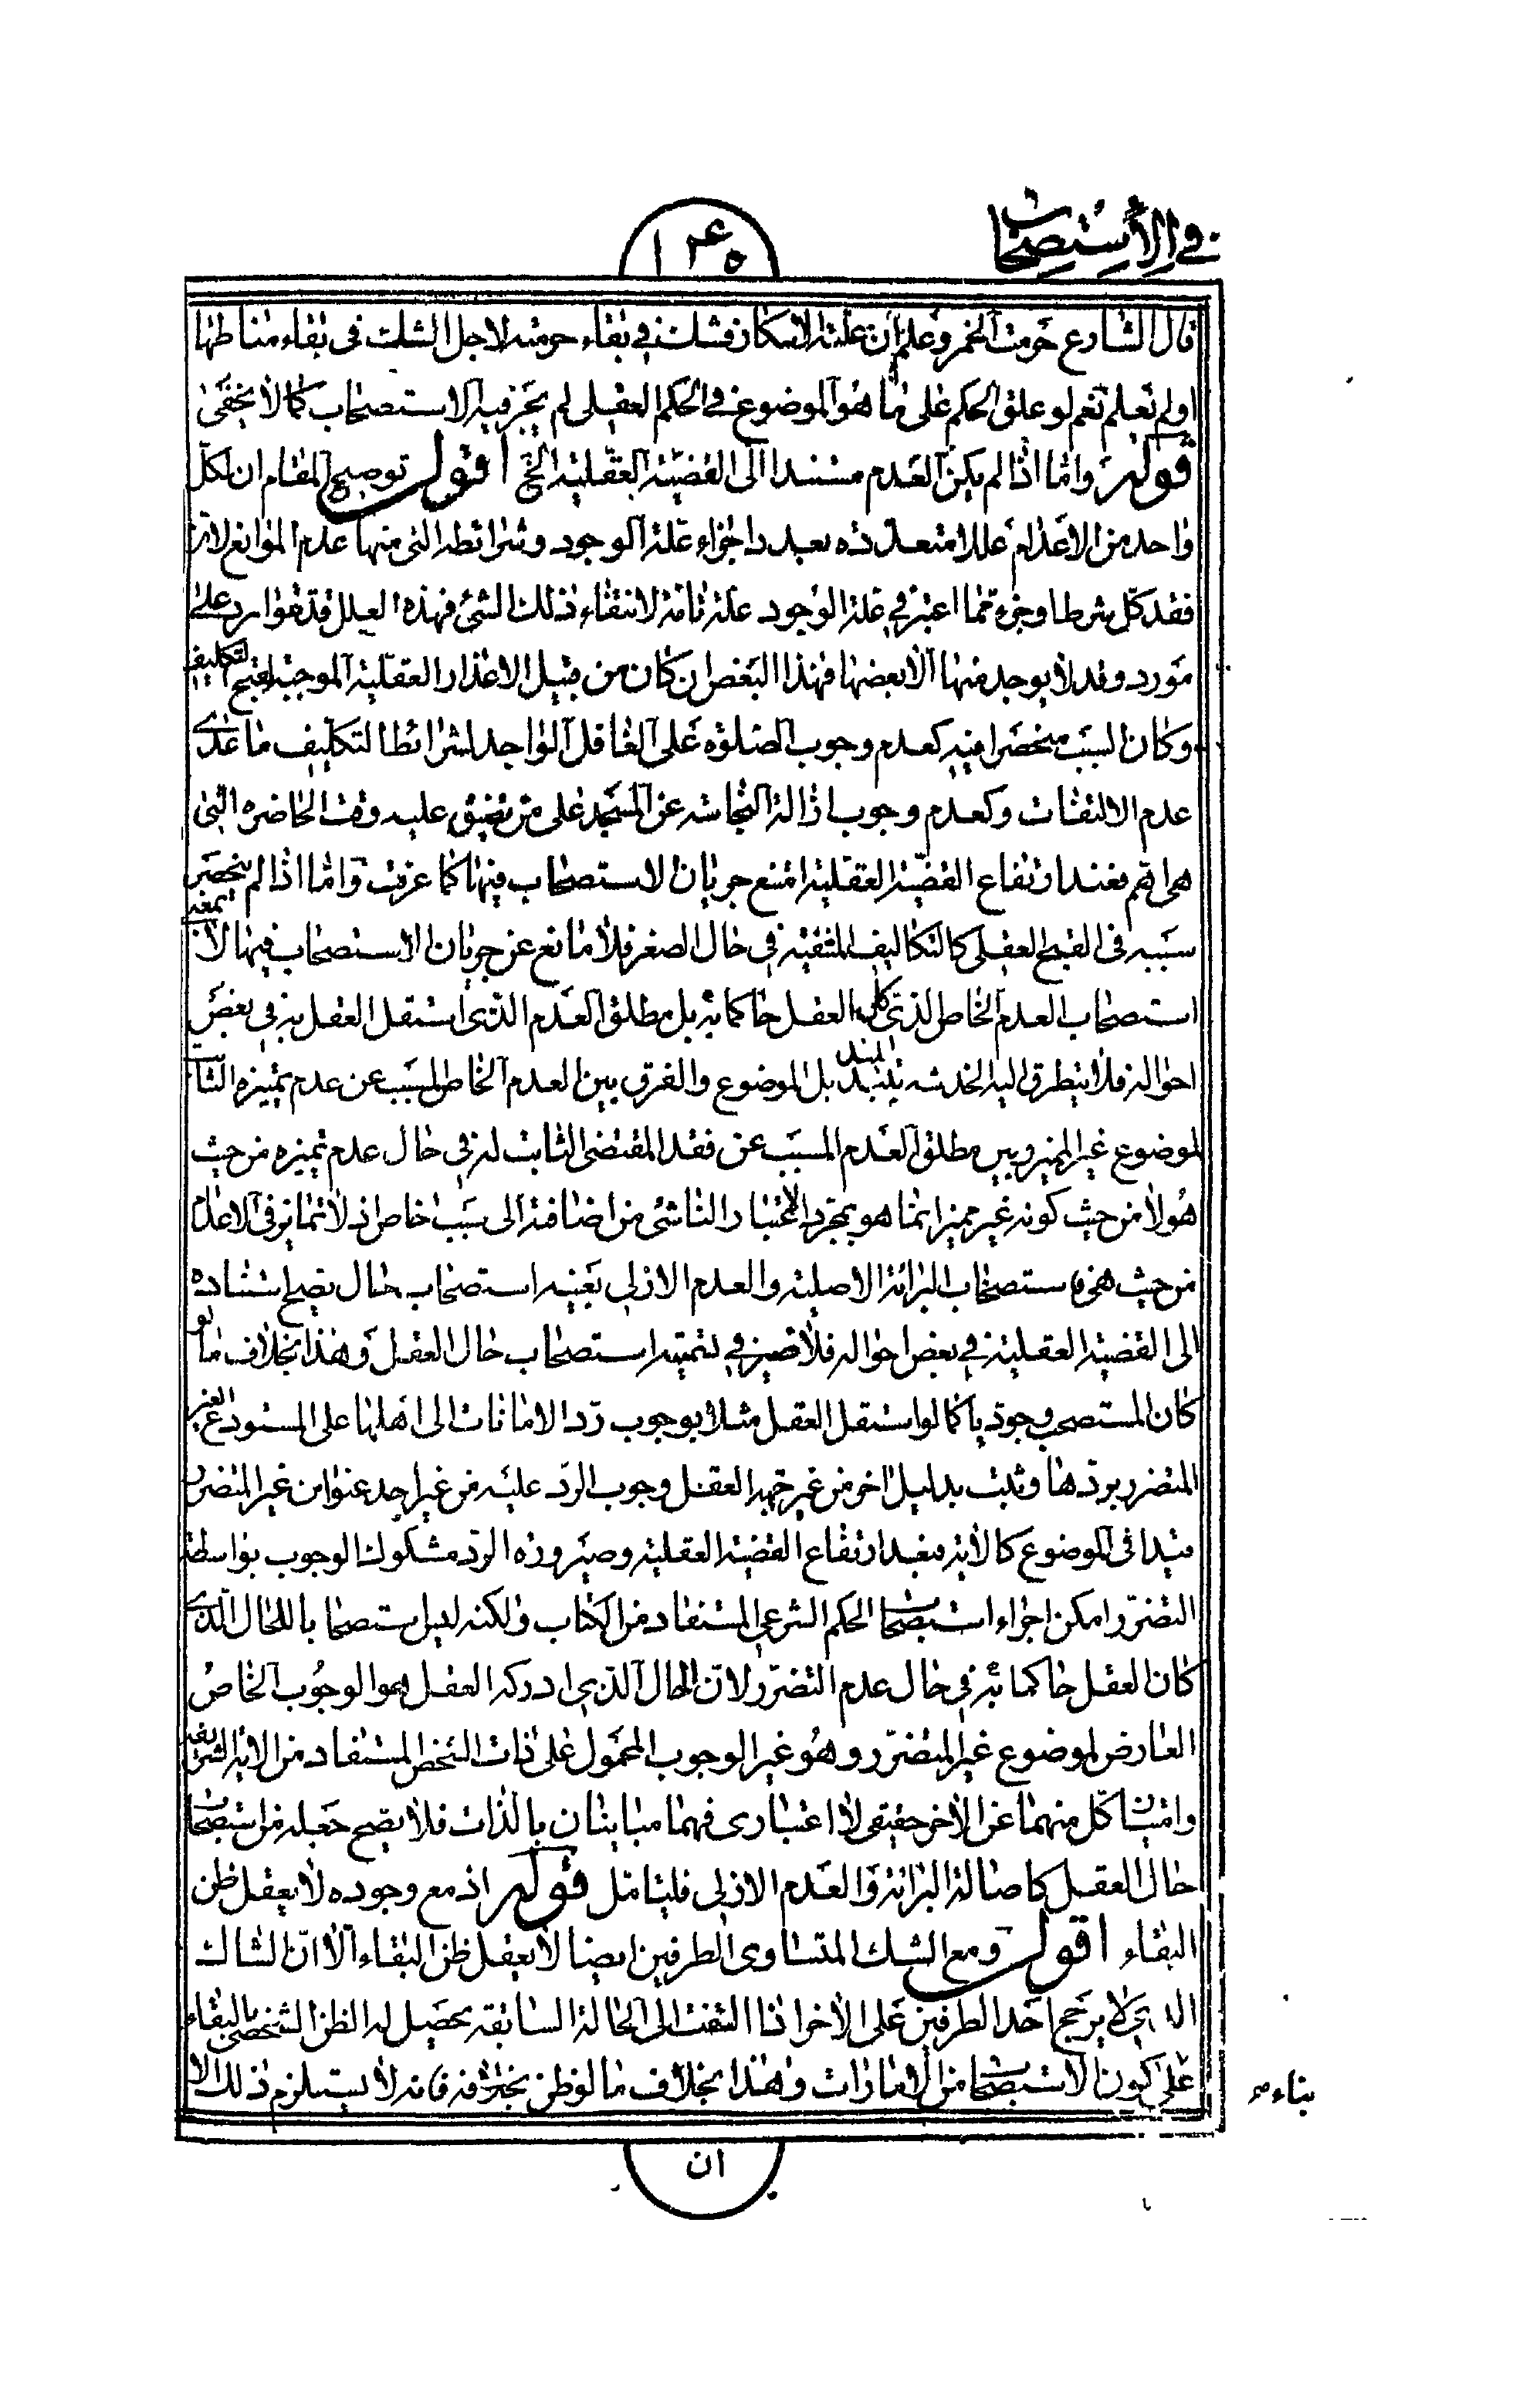 في الاستصحاب
قال الشارع حرمت الخمر وعلم ان علته الاسكار فشك في بقاء حرمته لاجل الشك فى بقاء مناطها
او لم نعلم نعم لو علق الحكم على ما هو الموضوع في الحكم العقلى لم يجر فيه الاستصحاب كما لا يخفى
قوله واما اذا لم يكن العدم مستندا الى القضية العقلية الخ اقول توضيح المقام ان لكل
واحد من الاعدام عللا متعددة بعدد اجزاء علة الوجود وشرائطه التى منها عدم الموانع لان
فقد كل شرط او جزء مما اعتبر في علة الوجود علة تامة لانتفاء ذلك الشئ فهذه العلل قد تتوارد على
مورد وقد لا يوجد منها الا بعضها فهذا البعض ان كان من قبيل الاعذار العقلية الموجبة لقبح التكليف
وكان السبب منحصرا فيه كعدم وجوب الصلوة على الغافل الواجد لشرائط التكليف ما عدى
عدم الالتفات وكعدم وجوب ازالة النجاسة عن المسجد على من تضيق عليه وقت الحاضرة التى
هى اهم فعند ارتفاع القضية العقلية امتنع جريان الاستصحاب فيها كما عرفت واما اذا لم ينحصر
سببه فى القبح العقلى كالتكاليف المنفية في حال الصغر فلا مانع عن جريان الاستصحاب فيها لا بمعنى
استصحاب العدم الخاص الذى كان العقل حاكما به بل مطلق العدم الذى استقل العقل به في بعض
احواله فلا يتطرق اليه الخدشة بتبدل الموضوع والفرق بين العدم الخاص المسبب عن عدم تميزه الثابت
لموضوع غير المميز وبين مطلق العدم المسبب عن فقد المقتضى الثابت له في حال عدم تميزه من حيث
هو لا من حيث كونه غير مميز انما هو بمجرد الاعتبار الناشئ من اضافته الى سبب خاص اذ لا تمايز فى الاعدام
من حيث هى فاستصحاب البرائة الاصلية والعدم الازلى بعينه استصحاب حال يصح استناده
الى القضية العقلية في بعض احواله فلا ضير في تسميته استصحاب حال العقل وهذا بخلاف ما لو
كان المستصحب وجوديا كما لو استقل العقل مثلا بوجوب رد الامانات الى اهلها على المستودع الغير
المتضرر بردها وثبت بدليل اخر من غير جهة العقل وجوب الرد عليه من غير اخذ عنوان غير المتضرر
قيدا فى الموضوع كالاية فبعد ارتفاع القضية العقلية وصيرورة الرد مشكوك الوجوب بواسطة
التضرر امكن اجراء استصحاب الحكم الشرعى المستفاد من الكتاب ولكنه ليس استصحابا للحال الذى
كان العقل حاكما به في حال عدم التضرر لان الحال الذى ادركه العقل هو الوجوب الخاص
العارض لموضوع غير المتضرر وهو غير الوجوب المحمول على ذات الشخص المستفاد من الاية الشريفة
وامتياز كل منهما عن الاخر حقيقى لا اعتبارى فهما متباينان بالذات فلا يصح جعله من استصحاب
حال العقل كاصالة البرائة والعدم الازلى فليتامل قوله اذ مع وجوده لا يعقل ظن
البقاء اقول ومع الشك المتساوى الطرفين ايضا لا يعقل ظن البقاء الا ان الشاك
الذى لا يرجح احد الطرفين على الاخر اذا التفت الى الحالة السابقة يحصل له الظن الشخصى بالبقاء
على كون الاستصحاب من الامارات وهذا بخلاف ما لو ظن بخلافه فانه لا يستلزم ذلك الا
بناء
ان